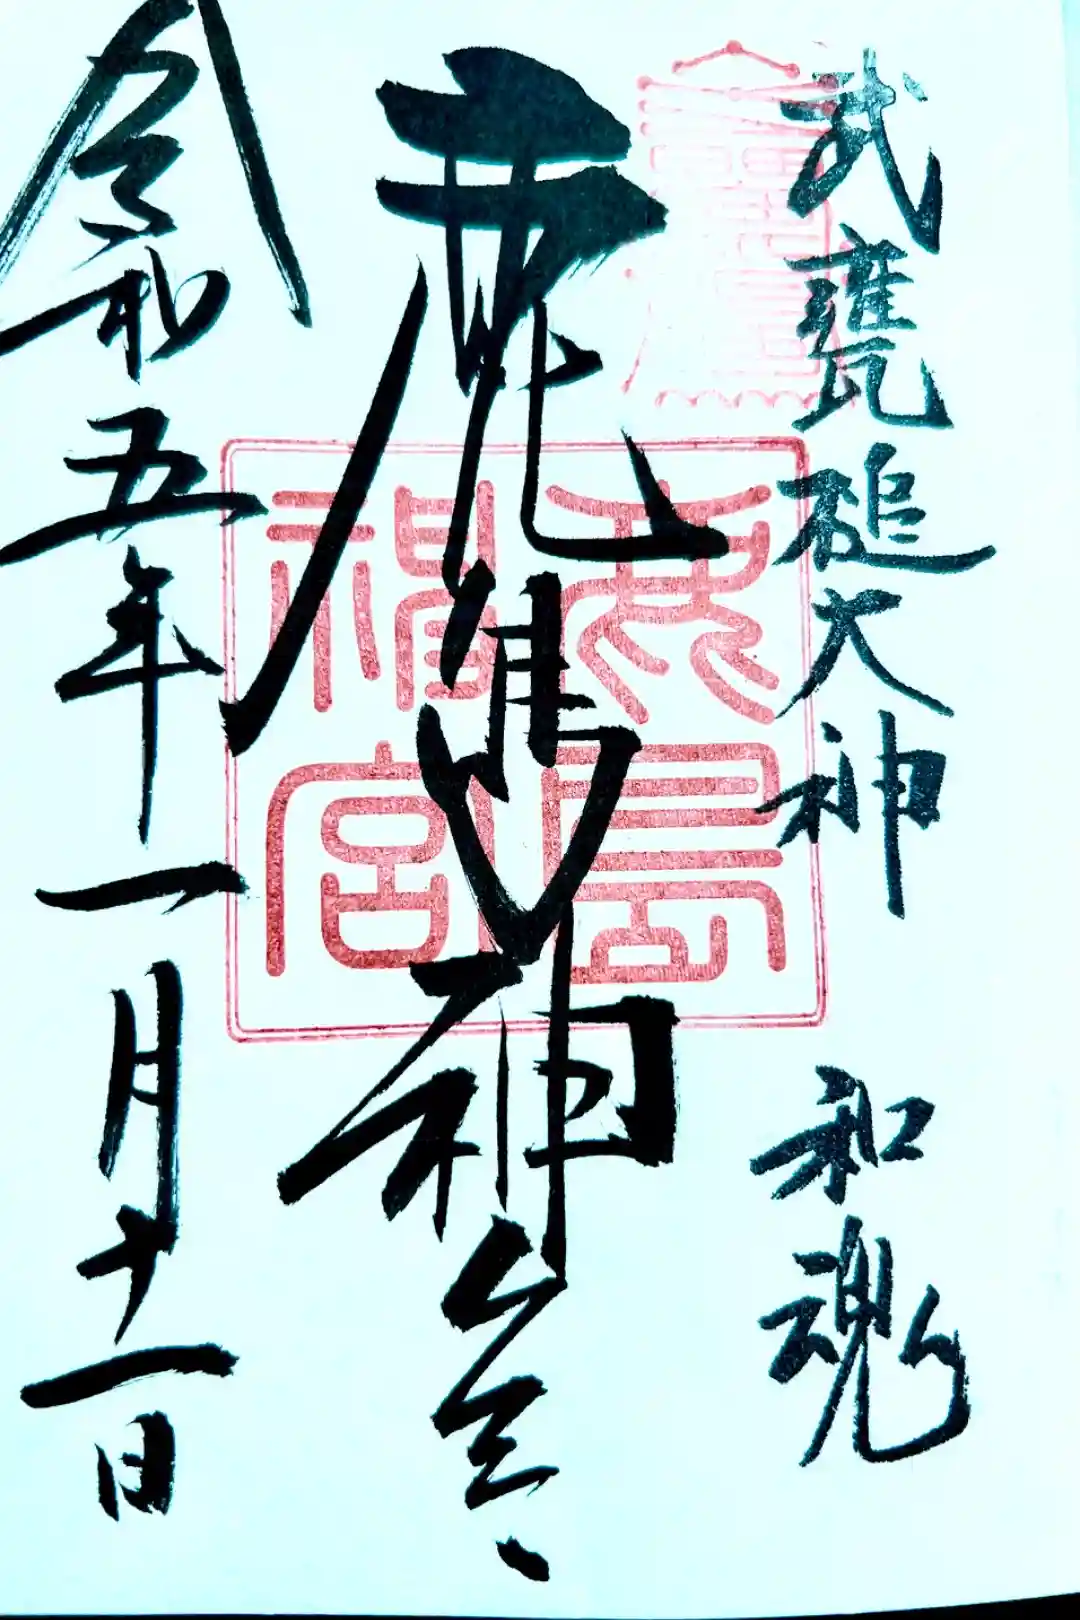 武甕槌大神 和魂
鹿島神宮
令和五年一月十一日
鹿島
神宮